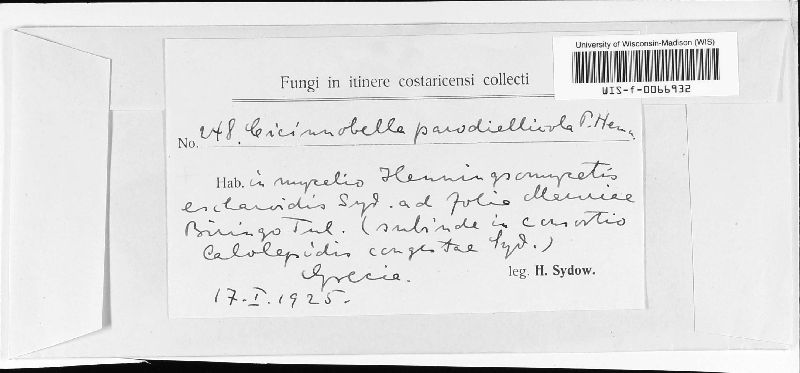 University of Wisconsin-Madison (WIS)
WIS-f-0066932
Fungi in itinere costaricensi collecti
No. 248. Cicinnobella parodiellicola P. Henn.
Hab. in mycelio Henningsomycetis
escharoidis Syd. ad folia
Tul. (subinde in consortio
Calolepidis congestae Syd.)
Grecia.
leg. H. Sydow.
17.I.1925.